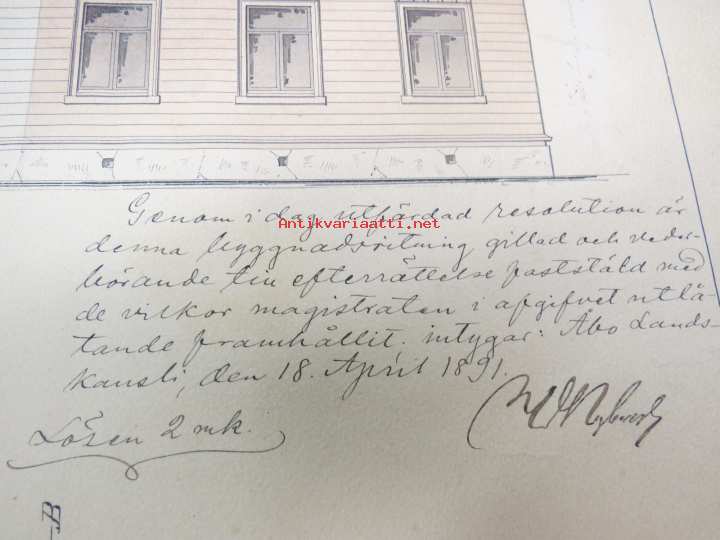 Antikvariaatti.net
Genom i dag utfärdad resolution är
denna byggnadsritning gillad och veder-
börande till efterrättelse faststäld med
de vilkor magistraten i afgifvet utlå-
tande framhållit. intygar: Åbo Lands-
kansli, den 18. April 1891.
Lösen 2 mk.
B